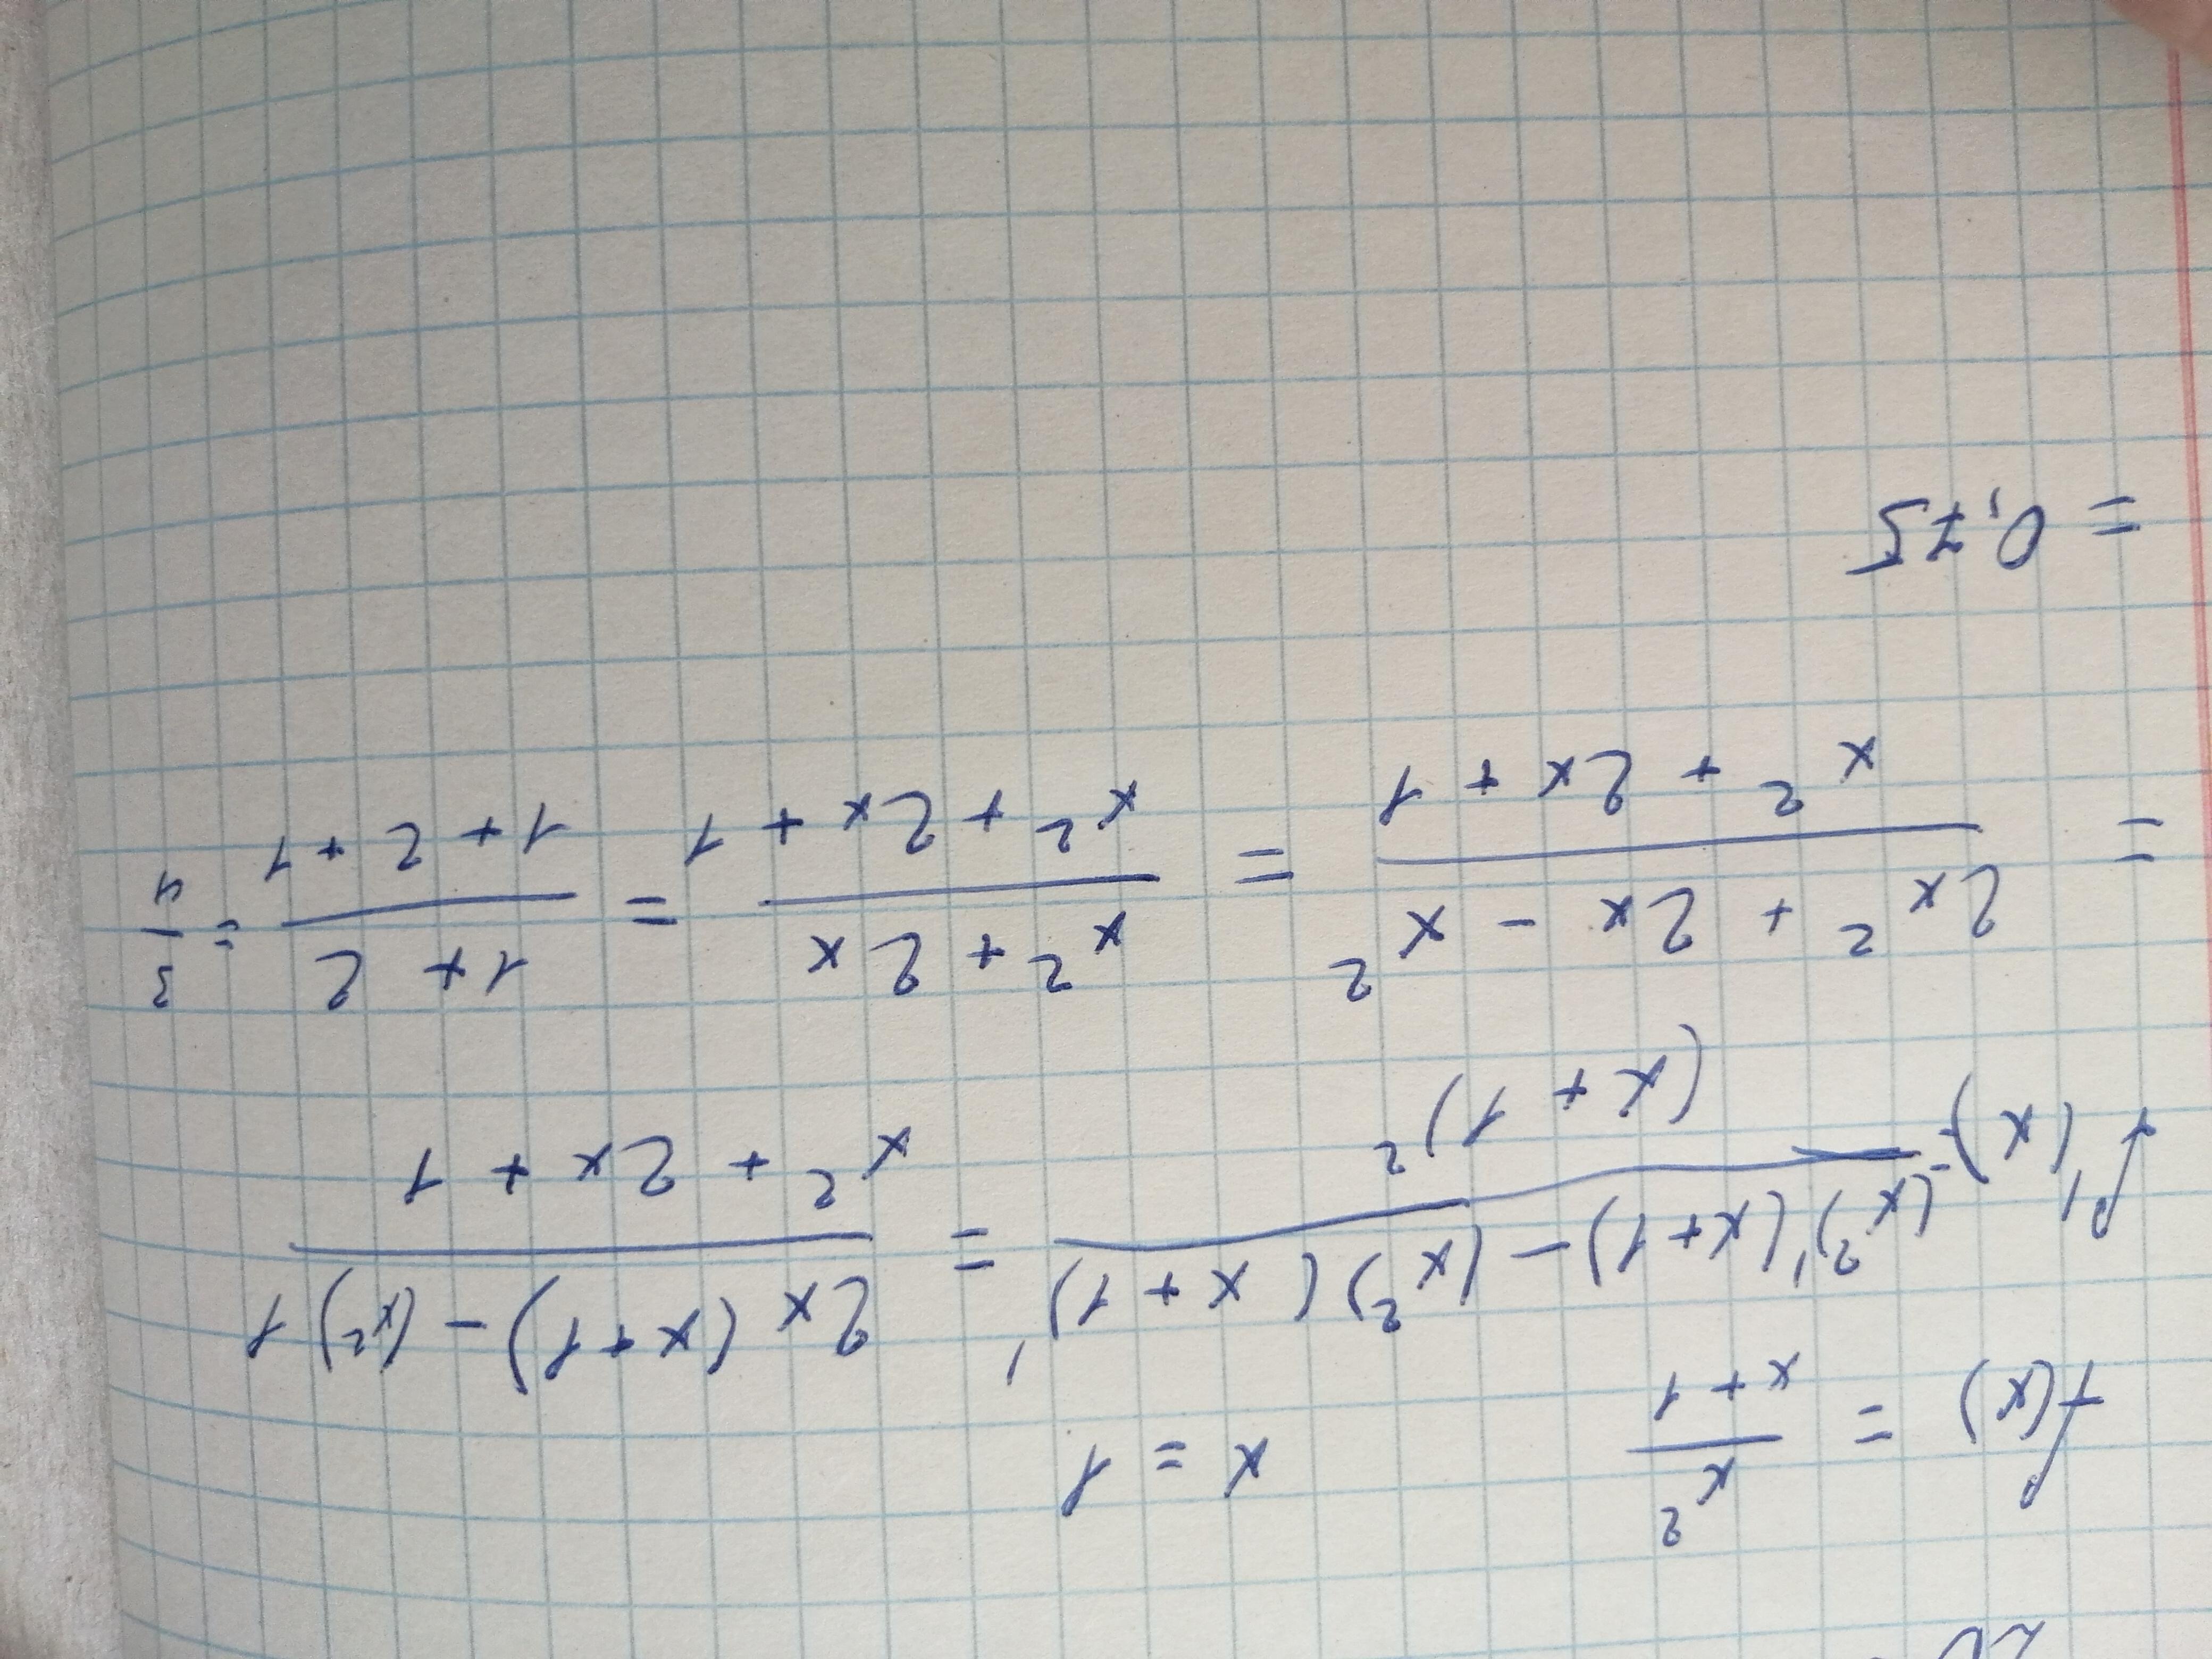 f(x) = x²/(x+1)    x = 1
f'(x) = ((x²)'(x+1) - (x²)(x+1)')/(x+1)² = (2x(x+1) - (x²)1)/(x² + 2x + 1)
= (2x² + 2x - x²)/(x² + 2x + 1) = (x² + 2x)/(x² + 2x + 1) = (1 + 2)/(1 + 2 + 1) = 3/4
= 0,75